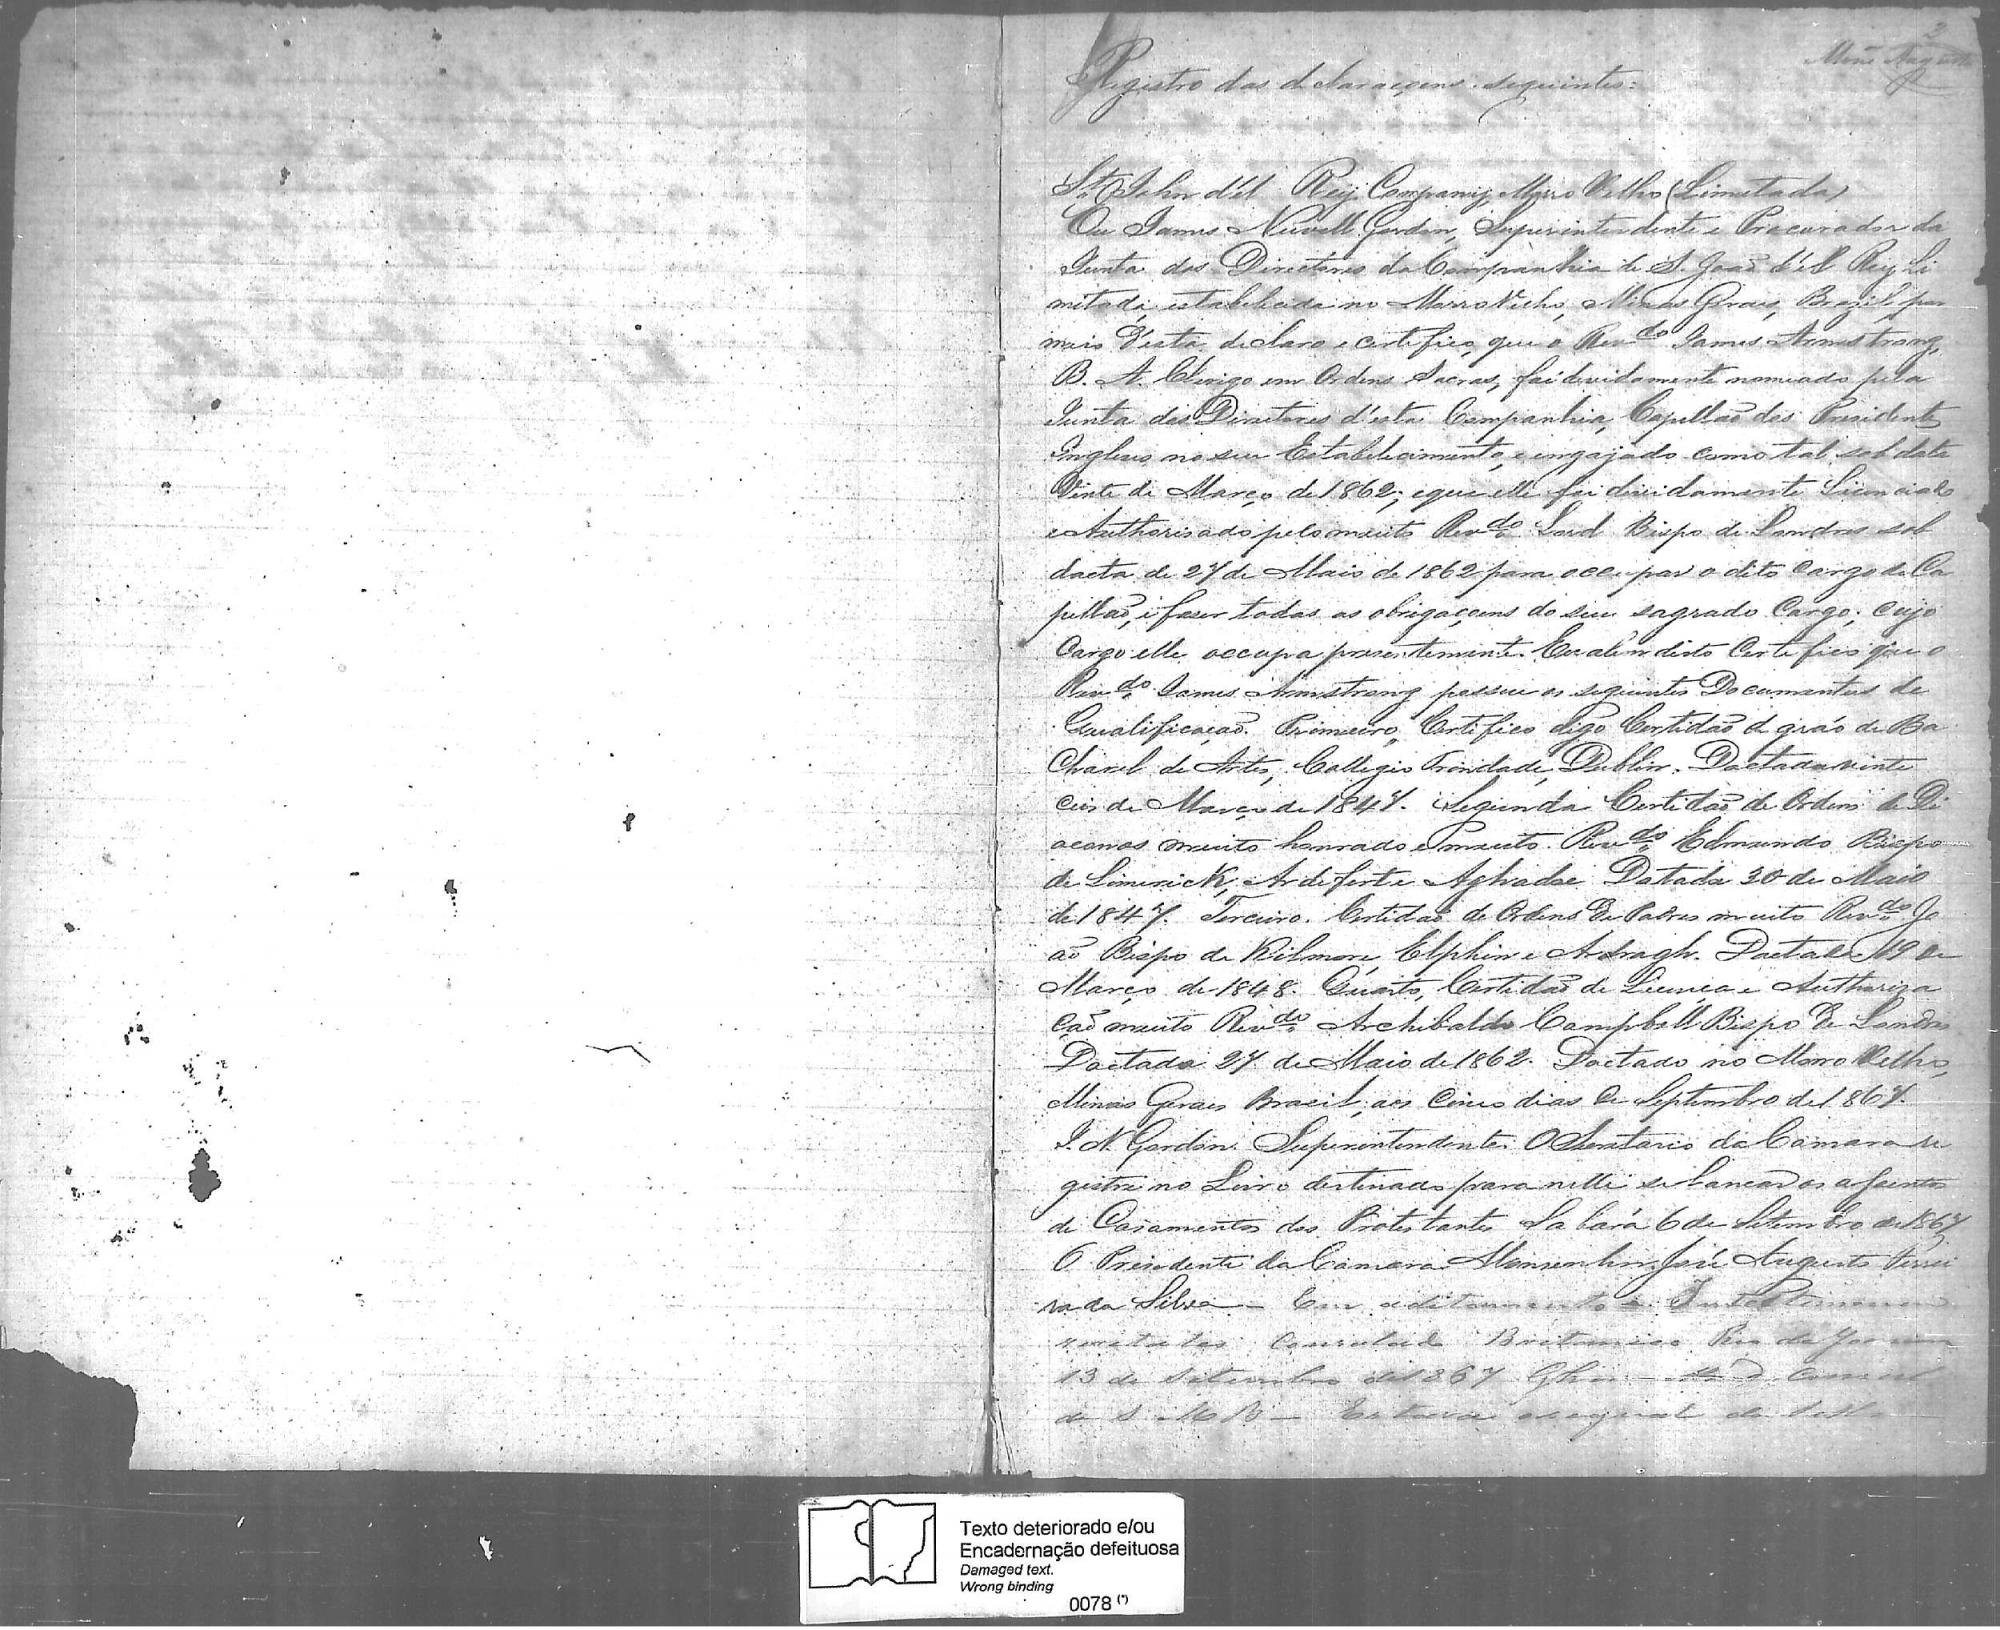 2
Registro das declaraçoens seguintes:
St John d'el Rey Company, Morro Velho (Limitada)
Eu James Newell Gordon, Superintendente e Procurador da
Junta dos Directores da Companhia de S. João d'El Rey Li
mitada, estabelecida no Morro Velho, Minas Geraes, Brazil, por
meio d'esta declaro e certifico, que o Revdo James Armstrong,
B. A. Clerigo em Ordens Sacras, foi devidamente nomeado pela
Junta dos Directores d'esta Companhia, Capellão dos Residentes
Inglezes no seu Estabelecimento, e engajado como tal sob data
Vinte de Março de 1862; e que elle foi devidamente Licenciado
e Authorisado pelo muito Revdo Lord Bispo de Londres sob
dacta de 27 de Maio de 1862 para occupar o dito Cargo de Ca
pellão, e fazer todas as obrigaçoens do seu sagrado Cargo; cujo
Cargo elle occupa presentemente. Eu alem disto Certifico que o
Revdo James Armstrong possue os seguintes Documentos de
Qualificação. Primeiro, Certifico digo Certidão d gráo de Ba
charel de Artes, Collegio Trindade, Dublin. Dactada vinte
ceis de Março de 1847. Segunda Certidão de Ordens de Di
aconos muito honrado e muito Revdo Edmundo Bispo
de Limerick, Ardefert e Aghadoe Datada 30 de Maio
de 1847. Terceiro. Certidão de Ordens de Padres muito Revdo Jo
ão Bispo de Kilmore, Elphin e Ardagh. Dactada 19 de
Março de 1848. Quarto, Certidão de Licença e Authoriza
ção muito Revdo Archibaldo Campbell Bispo de Londres
Dactada 27 de Maio de 1862. Dactado no Morro Velho,
Minas Geraes Brazil, aos Cinco dias de Septembro de 1867.
J. N. Gordon. Superintendente. O Secretario da Camara re
gistre no Livro destinado para nelle se lançar os assentos
de Casamentos dos Protestantes Sabará 6 de Setembro de 1867
O Presidente da Camara Monsenhor José Augusto Ferrei
ra da Silva — Em aditamento
Consulado Britanico Rio de Janeiro
13 de Setembro de 1867 Consul
de S M B —
Texto deteriorado e/ou
Encadernação defeituosa
Damaged text.
Wrong binding
0078 (*)